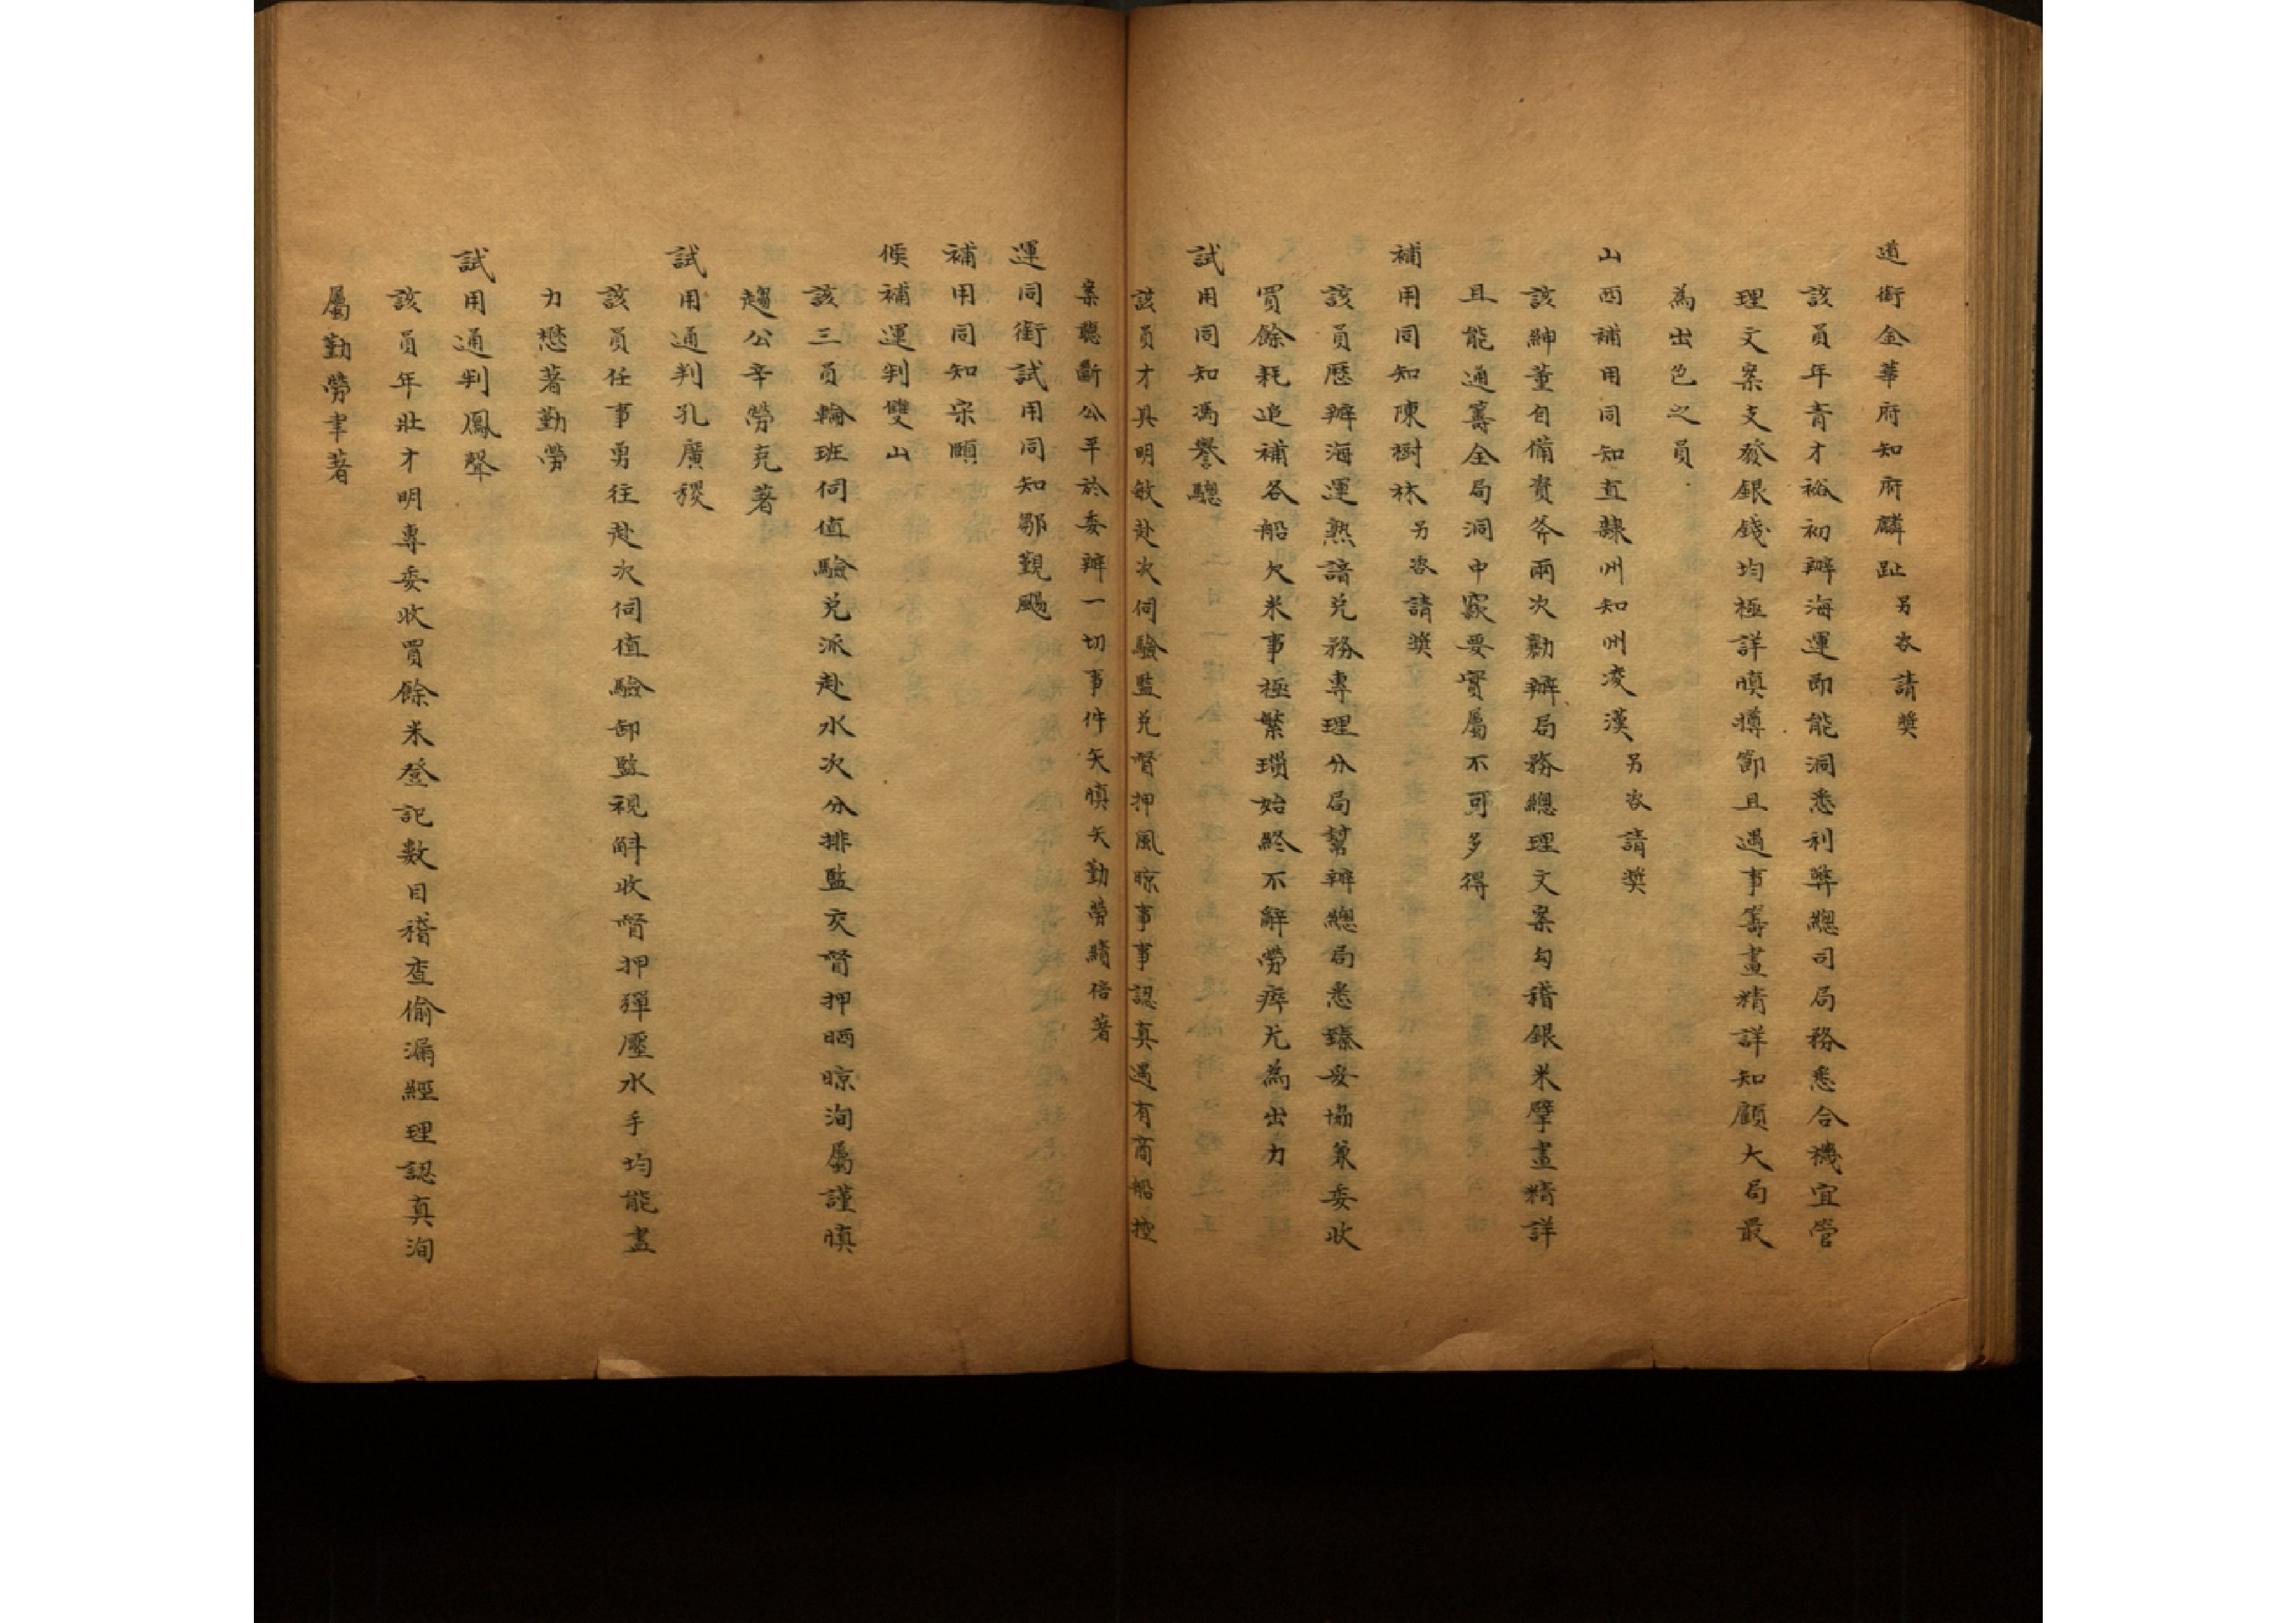 道銜金華府知府麟趾另咨請獎
該員年青才裕初辦海運即能洞悉利弊總司局務悉合機宜管
理文案支發銀錢均極詳慎撙節且遇事籌畫精詳知顧大局最
為出色之員
山西補用同知直隸州知州凌漢另咨請獎
該紳董自備資斧兩次勷辦局務總理文案勾稽銀米擘畫精詳
且能通籌全局洞中窾要實屬不可多得
補用同知陳樹林另咨請獎
該員歷辦海運熟諳兌務專理分局幫辦總局悉臻妥協兼委收
買餘耗追補各船欠米事極繁瑣始終不辭勞瘁尤為出力
試用同知馮譽驄
該員才具明敏赴次伺驗監兌督押風晾事事認真遇有商船控
案聽斷公平於委辦一切事件矢慎矢勤勞績倍著
運同銜試用同知鄒覲颺
補用同知宗頤
候補運判雙山
該三員輪班伺值驗兌派赴水次分排監交督押晒晾洵屬謹慎
趨公辛勞克著
試用通判孔廣稷
該員任事勇往赴次伺值驗卸監視斛收督押彈壓水手均能盡
力懋著勤勞
試用通判鳳聲
該員年壯才明專委收買餘米登記數目稽查偷漏經理認真洵
屬勤勞聿著